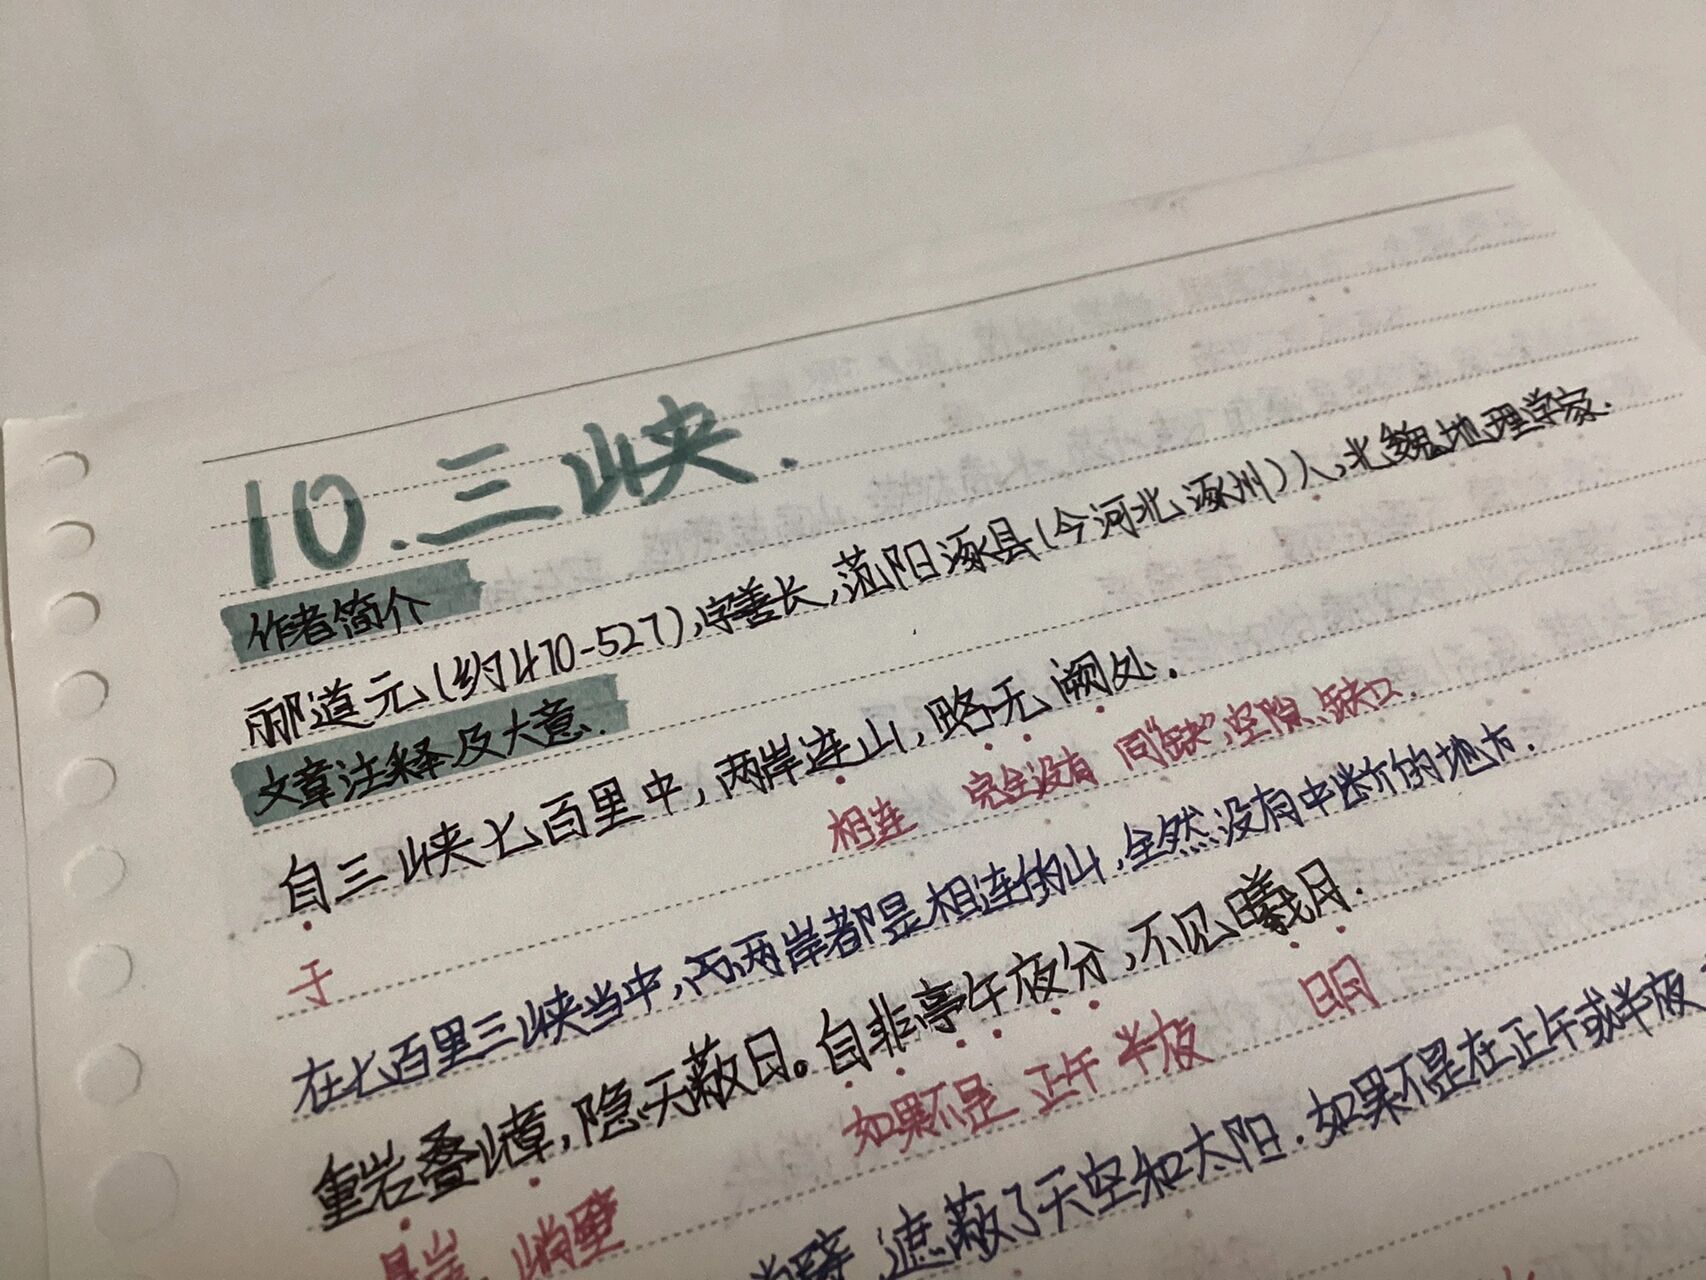 10.三峡.
作者简介
郦道元(约470-527),字善长,范阳涿县(今河北涿州)人,北魏地理学家.
文章注释及大意.
自三峡七百里中,两岸连山,略无阙处.
于 相连 完全没有 同“缺”,空隙、缺口.
在七百里三峡当中,两岸都是相连的山,全然没有中断的地方.
重岩叠嶂,隐天蔽日。自非亭午夜分,不见曦月.
如果不是 正午 半夜 日月
遮蔽了天空和太阳.如果不是在正午或半夜